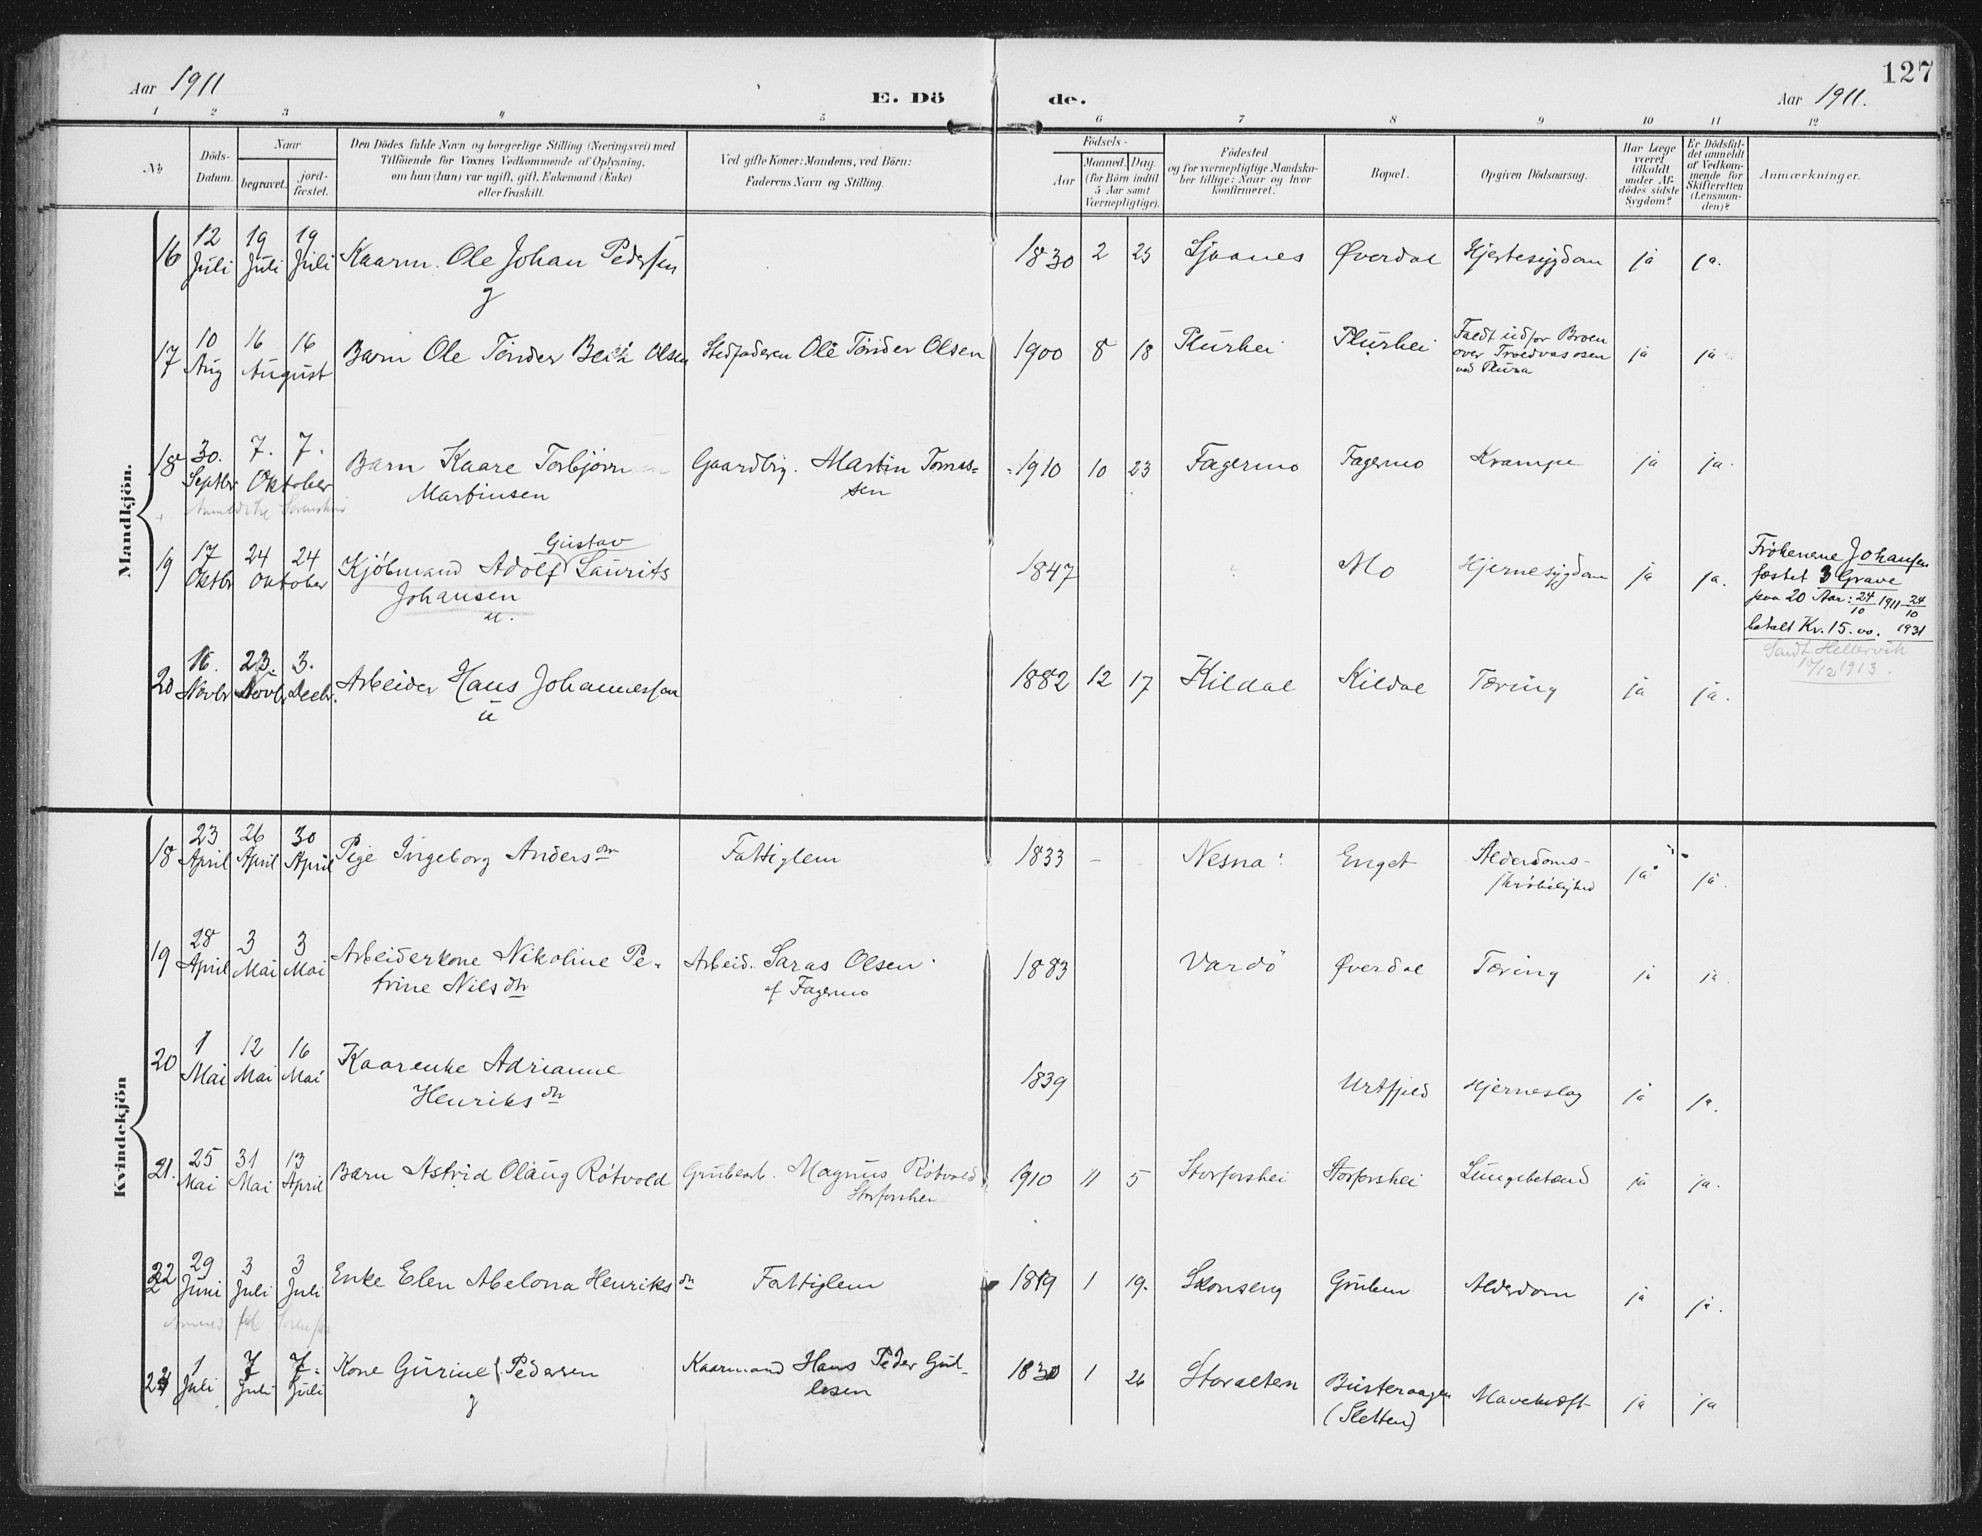 127
Aar 1911
E. Dö de.
Aar 1911.
1 2 3 4 5 6 7 8 9 10 11 12
No
Döds-
Datum.
Naar
begravet.
jord-
fæstet.
Den Dödes fulde Navn og borgerlige Stilling (Næringsvei) med
Tilföiende for Voxnes Vedkommende af Oplysning,
om han (hun) var ugift, gift, Enkemand (Enke)
eller fraskilt.
Ved gifte Koner: Mandens, ved Börn:
Faderens Navn og Stilling.
Födsels-
Aar
Maaned. Dag.
(for Börn indtil
5 Aar samt
Værnepligtige).
Födested
og for værnepligtige Mandska-
ber tillige: Naar og hvor
konfirmeret.
Bopæl.
Opgiven Dödsaarsag.
Har Læge
været
tilkaldt
under Af-
dödes sidste
Sygdom?
Er Dödsfal-
det anmeldt
af Vedkom-
mende for
Skifteretten
(Lensman-
den)?
Anmærkninger.
Mandkjön.
16 12 Juli 19 Juli 19 Juli Kaarm. Ole Johan Pedersen 1830 2 25 Sjaanes Øverdal Hjertesygdom ja ja.
g
17 10 Aug 16 16 August Barn Ole Tönder Olsen Stedfaderen Ole Tönder Olsen 1900 8 18 Plurhei Plurhei Faldt udfor Broen
over
ved Plura ja ja
18 30. Septbr 7. 7. Oktober Barn Kaare Torbjørn Gaardbrg. Martin Tomas- 1910 10 23 Fagermo Fagermo Krampe ja ja.
Martinsen sen
Gustav
19 17 Oktbr 24 24 Oktober Kjöbmand Adolf Laurits 1847 Mo Hjernesygdom ja ja.
Johansen
Frøkenene Johansen
fæstet 3 Grave
paa 20 Aar: 24/10 1911 24/10
betalt Kr. 15.00. 1931
1913.
20 16. Novbr 23. Novbr 3. Decbr. Arbeider Hans Johannessen 1882 12 17 Kildal Kildal Tæring ja ja.
u
Kvindekjön
18 23 April 26 April 30 April Pige Ingeborg Andersdtr Fattiglem 1833 - - Nesna Enget Alderdoms-
skröbelighed ja ja.
19 28 April 3 Mai 3 Mai Arbeiderkone Nikoline Pe- Arbeid. Saras Olsen 1883 Vardö Øverdal Tæring ja ja.
trine Nilsdtr af Fagermo
20 1 Mai 12 Mai 16 Mai Kaarenke Adrianne
Henriksdtr 1839 Urtfjeld Hjerneslag ja ja.
21. 25 Mai 31 Mai 13 April Barn Astrid Olaug Røtvold Grubearb. Magnus Røtvold 1910 11 5 Storforshei Storforshei Lungebetænd ja ja.
Storforshei
22 29 Juni 3 Juli 3 Juli Enke Elen Abelona Henriksdtr Fattiglem 1819 1 19. Skonseng Gruben Alderdom ja ja.
1 Juli 7 Juli 7. Juli Kone Gurine Pedersen Kaarmand Hans Peder Gul- 1830 1 26 Storalten
(Sletten) Mavekræft ja ja
g lesen